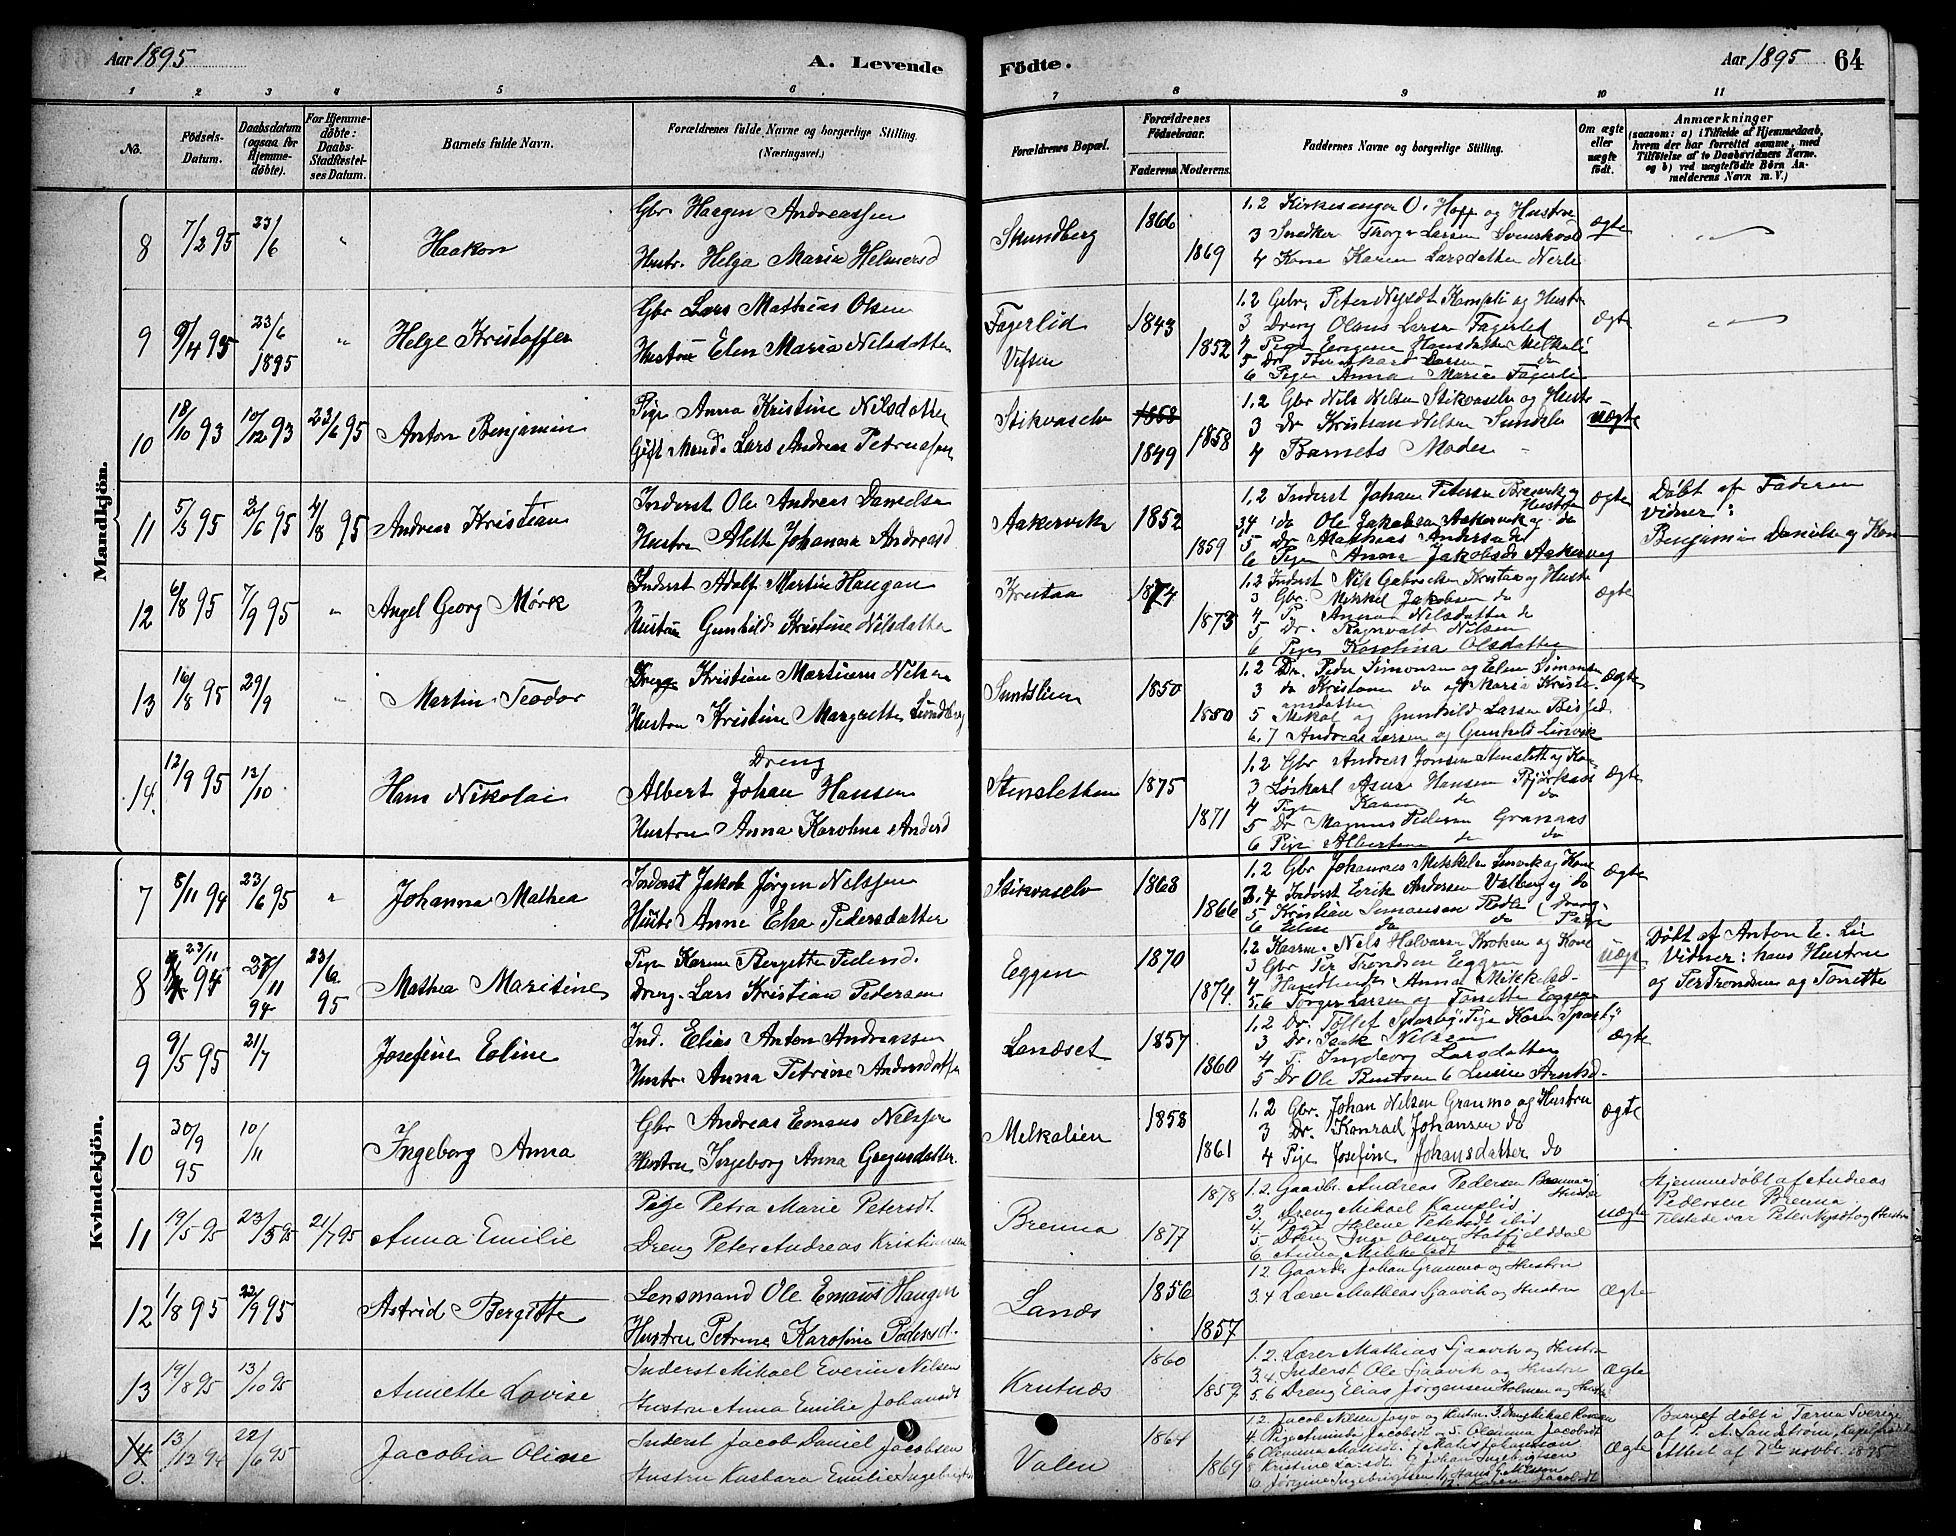 Aar 1895
A. Levende
Födte.
Aar 1895
64
1 2 3 4 5 6 7 8 9 10 11
No.
Födsels-
Datum.
Daabsdatum
(ogsaa for
Hjemme-
døbte).
For Hjemme-
døbte:
Daabs-
Stadfæstel-
ses Datum.
Barnets fulde Navn.
Forældrenes fulde Navne og borgerlige Stilling.
(Næringsvei.)
Forældrenes Bopæl.
Forældrenes
Födselsaar.
Faderens. Moderens.
Faddernes Navne og borgerlige Stilling.
Om ægte
eller
uægte
födt.
Anmærkninger
(saasom: a) i Tilfælde af Hjemmedaab,
hvem der har forrettet samme, med
Tilföielse af to Daabsvidners Navne,
og b) ved uægtefödte Börn An-
melderens Navn m. V.)
Mandkjön.
8 7/2 95 23/6 " Haakon
Gbr. Haagen Andreassen
Hustr. Helga Maria Helmersd
Skundberg 1866 1869
1.2 Kirkesanger O. Hopp og Hustru
3 Snedker Larsen
4 Kone Karen Larsdatter Nerli
ægte
9 9/4 95 23/6 1895 " Helge Kristoffer
Gbr Lars Mathias Olsen
Hustru Elen Maria Nilsdatter
Fagerlid
Vefsen
1843 1852
1.2 Gbr. Peter Nysdt Kampli og Hustru
3 Dreng Olaus Larsen Fagerlid
4 Pige Hansdatter
5 Dr. Larsen do
6 Pige Anna Marie Fagerli
ægte
10 18/10 93 10/12 93 23/6 95 Anton Benjamin
Pige Anna Kristine Nilsdatter
Gift Mand. Lars Andreas Petersen
Stikvaselv 1858 1849 1858
1.2 Gbr Nils Nilsen Stikvaselv og Hustr
3 Dr Kristian Nilsen
4 Barnets Moder
uægte
11 5/5 95 2/6 95 4/8 95 Andreas Kristian
Inderst Ole Andreas Danielsen
Hustru Alette Johanna Andreasd
Aakervik 1852 1859
1.2 Inderst Johan Petersen Brenvik og
Hustru
34 do Ole Jakobsen Aakervik og do
5 Dr Mathias
6 Pige Anna Jakobsdt
ægte
Döbt af Faderen
Vidner:
Benjamin Danielsen og Kone
12 6/8 95 7/9 95 " Angel Georg Mörk
Inderst Adolf Martin Haugan
Hustru Gunhild Kristine Nilsdatter
Krutaa 1874 1873
1.2 Inderst Nils Krutaa og Hustr
3 Gbr. Mikkel Jakobsen do
4 P. Anna Nilsdatter do
5 Dr. Ragnvald Nilsen
6 Pige Karolina Olsdatter
ægte
13 16/8 95 29/9 " Martin Teodor
Dreng Kristian Martinus Nilsen
Hustru Kristine Margrethe
Sundslien 1850 1850
1.2 Dr. Peder Simonsen og Elen Simonsen
3 do Kristian do og Maria Kristi-
ansdatter
5 Mikal og Gunhild Larsen
6.7 Andreas Larsen og Gunhild
ægte
14. 12/9 95 12/10 Hans Nikolai
Dreng
Albert Johan Hansen
Hustru Anna Karoline Andersd
Stensletten 1875 1871
1.2 Gbr Andreas Jonsen Stenslett og Kone
3 Løskarl Hansen
4 Pige do do
5 Dr Magnus Pedersen Grannæs
6 Pige do do
ægte
Kvindekjön.
7 8/11 94 23/6 95 " Johanna Mathea
Inderst Jakob Jörgen Nilssen
Hustr Anne Elsa Pedersdatter
Stikvaselv 1868 1866
1.2 Gbr Johannes Mikkelsen og Kone
3.4 Inderst Erik Andersen og do
5 Kristian Simonsen (Dreng
6 Eline do do Pige
ægte
8 23/11 94 27/11 94 23/6 95 Mathea Maritine
Pige Karen Bergitte Pedersd.
Dreng. Lars Kristian Pedersen
Eggen 1870 1874.
1.2 Nils Halvarsen Kroken og Kone
3 Gbr Per Trondsen Eggen
4 Anna Mikkelsd
5.6 Torger Larsen og Torrette Eggen
uægt
Döbt af Anton E. Lie
Vidner: hans Hustru
og Per Trondsen og Torrette
9 9/5 95 21/7 Josefine Eline
Ind. Elias Anton Andreassen
Hustr. Anna Petrine Andersdatter
Lenæset 1857 1860
1.2 Dr. Tollef Pige Karen
3 Dr. Isak Nilsen
4 P. Ingeborg Larsdatter
5 Dr Ole Bentsen 6
ægte
10 30/9 95 10/11 Ingeborg Anna
Gbr Andreas Emaus Nilssen
Hustru Ingeborg Anna Gregusdatter.
Melkalien 1858 1861
1.2 Gbr. Johan Nilsen Granmo og Hustru
3 Dr. Konrad Johansen do
4 Pige Josefine Johansdatter do
ægte
11 19/5 95 23/5 95 21/7 95 Anna Emilie
Pige Petra Marie Petersdt.
Dreng Peter Andreas Kristiansen
Brenna 1878 1877
1.2. Gaardbr. Andreas Pedersen Brenna og
Hustru
3. Dreng Mikael Kamplid
4. Pige Helene Petersdt ibid
5 Dreng Inge Olsen Hatfjelddal
6. Anna Mikkelsdt do
uægte
Hjemmedöbt af Andreas
Pedersen Brenna.
Tilstede var Peter Nysdt og Hustru
12 1/8 95 22/9 95 Astrid Bergitte
Lensmand Ole Emaus Haugen
Hustru Petrine Karoline Pedersd.
Lanæs 1856 1857
12 Gaardbr Johan Granmo og Hustru
3.4 Lærer Mathias Sjaavik og Hustru
ægte
13 19/8 95 13/10 95 Annette Lovise
Inderst Mikael Everin Nilsen
Hustru Anna Emilie Johansdt
Krutnæs 1860 1859
1.2. Lærer Mathias Sjaavik og Hustru
3.4. Inderst Ole Sjaavik og Hustru
5.6 Dreng Elias Jörgensen Holmen og Hustru
ægte
14 0. 13/12 94 22/6 95 Jacobia Oline
Inderst Jacob Daniel Jacobsen
Hustru Kasbara Emilie Ingebrigtsd
Valen 1864 1869
1.2. Jacob Nilsen og Hustru 3. Dreng Mikal
4. Pige Jacobsdt 5. Oleanna Jacobsdt
Kristine Larsdt Johan Ingebrigtsen
Jörgine Ingebrigtsen Hans G. Nilsen
Karen Jacobsdt
ægte
Barnet döbt i Tärna Sverige
af P. A. Sandström,
Attest af 7de novbr. 1895